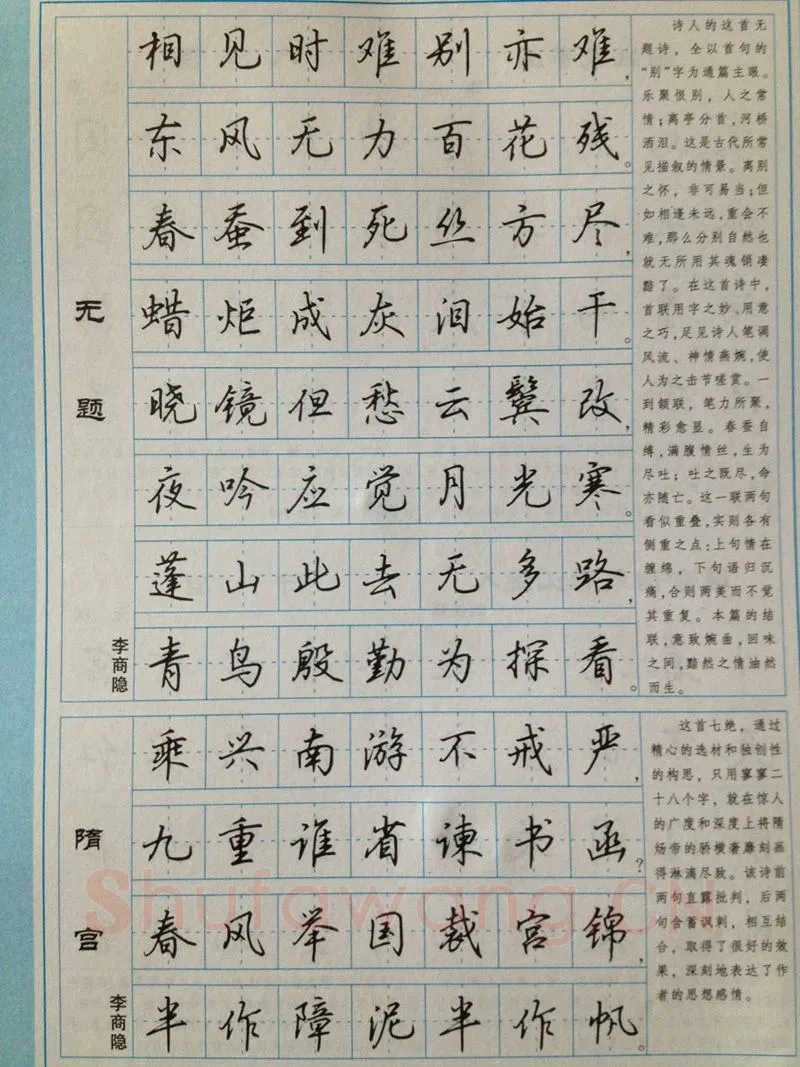 无题
李商隐
相见时难别亦难,
东风无力百花残。
春蚕到死丝方尽,
蜡炬成灰泪始干。
晓镜但愁云鬓改,
夜吟应觉月光寒。
蓬山此去无多路,
青鸟殷勤为探看。
诗人的这首无
题诗,全以首句的
“别”字为通篇主眼。
乐聚恨别,人之常
情;离亭分首,河桥
洒泪。这是古代所常
见描叙的情景。离别
之怀,非可易当;但
如相逢未远,重会不
难,那么分别自然也
就无所用其魂销凄
黯了。在这首诗中,
首联用字之妙、用意
之巧,足见诗人笔调
风流、神情燕婉,使
人为之击节嗟赏。一
到颔联,笔力所聚,
精彩愈显。春蚕自
缚,满腹情丝,生为
尽吐;吐之既尽,命
亦随亡。这一联两句
看似重叠,实则各有
侧重之点:上句情在
缠绵,下句语归沉
痛,合则两美而不觉
其重复。本篇的结
联,意致婉曲,回味
之间,黯然之情油然
而生。
隋宫
李商隐
乘兴南游不戒严,
九重谁省谏书函?
春风举国裁宫锦,
半作障泥半作帆。
这首七绝,通过
精心的选材和独创性
的构思,只用寥寥二
十八个字,就在惊人
的广度和深度上将隋
炀帝的骄横奢靡刻画
得淋漓尽致。该诗前
两句直露批判,后两
句含蓄讽刺,相互结
合,取得了很好的效
果,深刻地表达了作
者的思想感情。